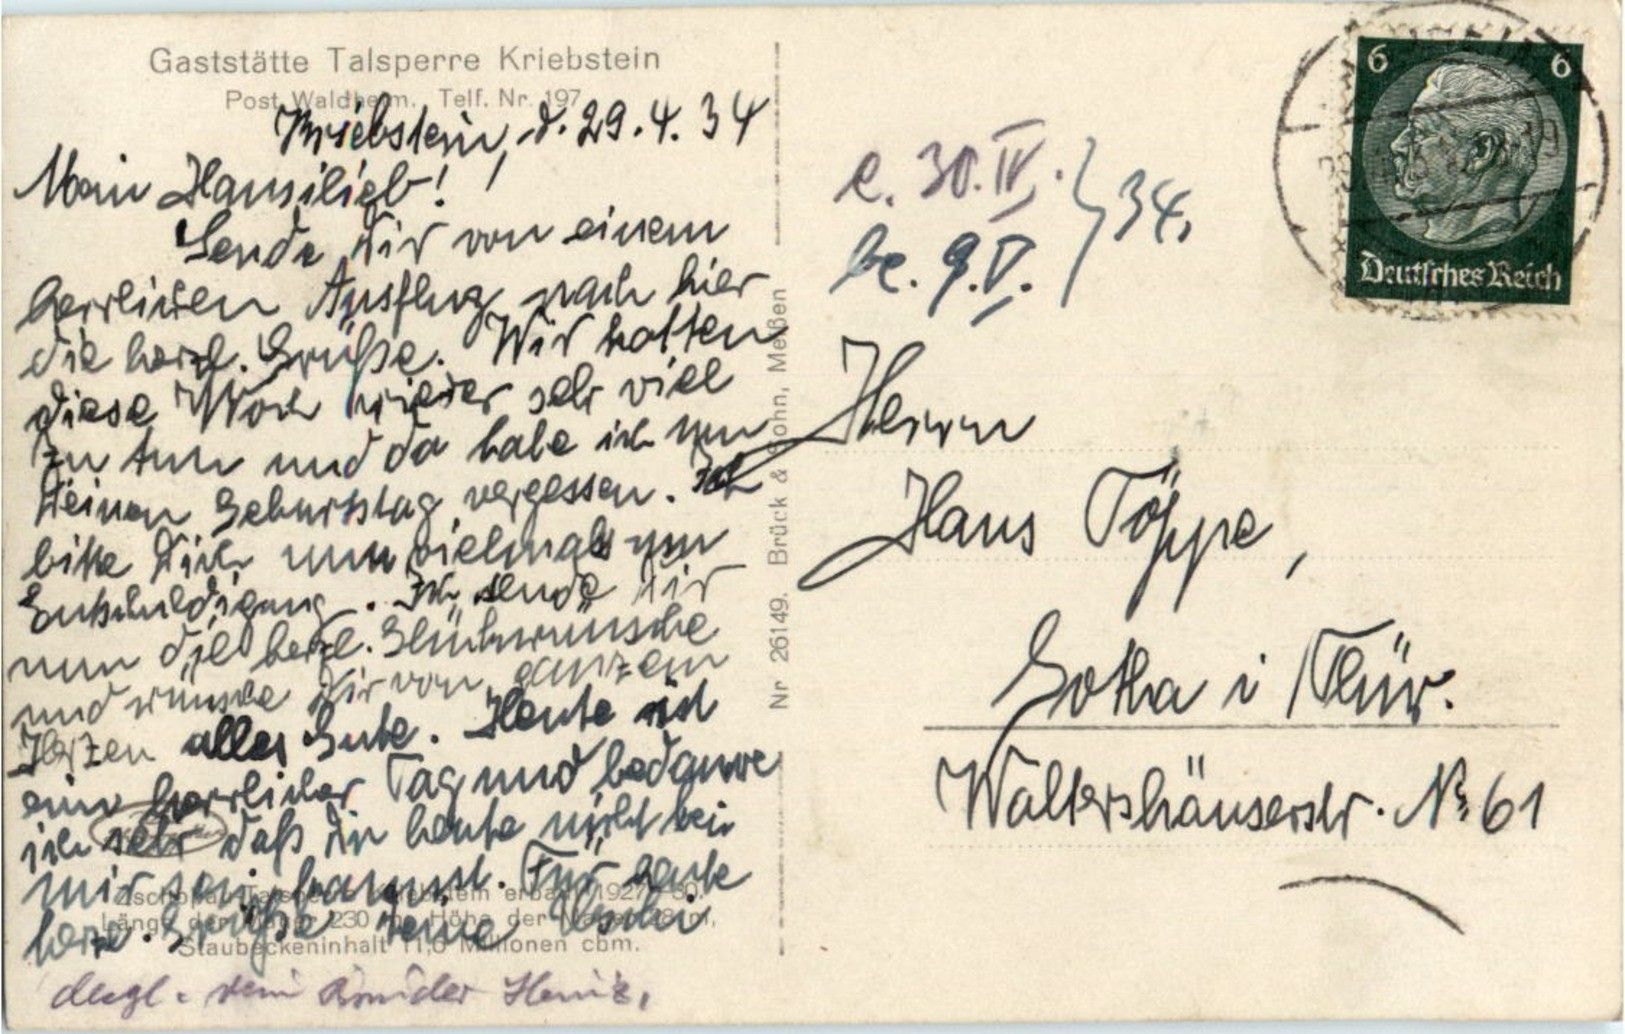 Gaststätte Talsperre Kriebstein
Post Waldheim. Telf. Nr. 197
Kriebstein, d. 29.4.34
Mein Hansilieb!
Sende Dir von einem
herrlichen Ausflug nach hier
die herzl. Grüße. Wir hatten
diese Woch wieder sehr viel
zu tun und da habe ich nun
Deinen Geburtstag vergessen. Ich
bitte Dich nun vielmals um
Entschuldigung. Ich sende Dir
nun die herzl. Glückwünsche
und wünsche Dir von ganzem
Herzen alles Gute. Heute ist
ein herrlicher Tag und bedaure
ich sehr daß Du heute nicht bei
mir sein kannst. Für heute
herzl. Grüße Deine Uschi
Zschopau-Talsperre Kriebstein erbaut 1927-30.
Länge der Mauer 230 m, Höhe der Mauer m,
Staubeckeninhalt 11,6 Millionen cbm.
desgl. dein Bruder Heinz.
Nr 26149. Brück & Sohn, Meißen
e. 30.IV.
be. 9.V.
34.
6 6
Deutsches Reich
Herrn
Hans Töppe,
Gotha i Thür.
Waltershäuserstr. No 61